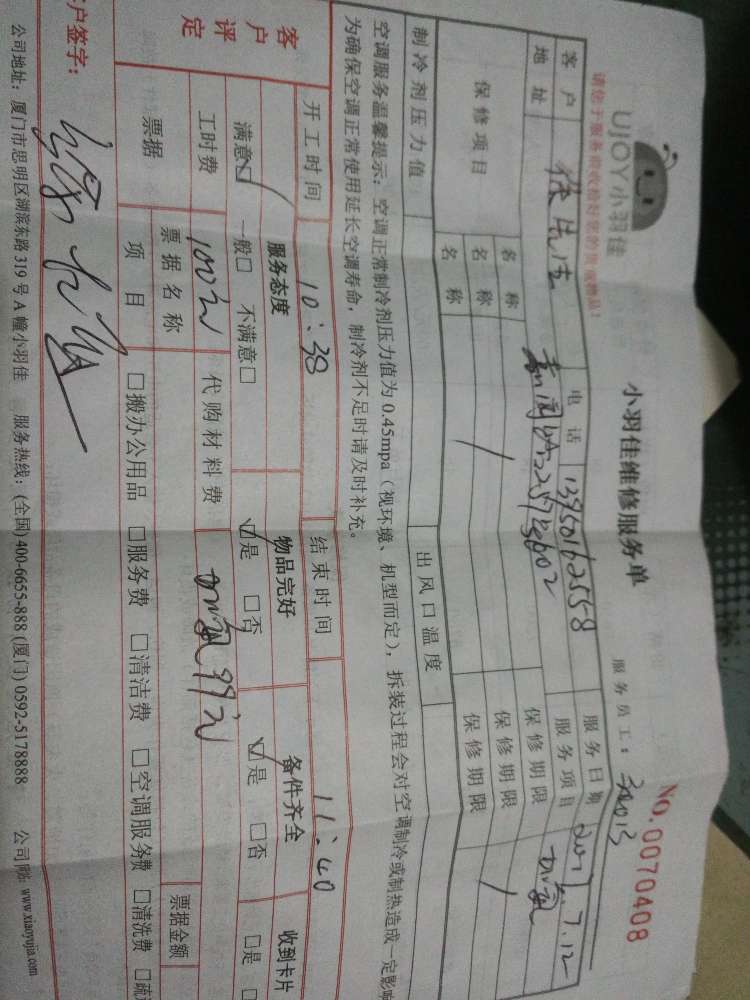 UJOY小羽佳
小羽佳维修服务单
NO.0070408
请您于服务前收捡好您的贵重物品!
服务员工:
客户
电话 13950162558
服务日期 2017.7.12
地址
服务项目 加氟
保修项目 名称 保修期限
名称 保修期限
名称 保修期限
制冷剂压力值 出风口温度
空调服务温馨提示:空调正常制冷剂压力值为0.45mpa(视环境、机型而定),拆装过程会对空调制冷或制热造成一定影响
为确保空调正常使用延长空调寿命,制冷剂不足时请及时补充。
开工时间 10:38 结束时间 11:40
客户评定 服务态度 物品完好 备件齐全 收到卡片
满意☑ 一般□ 不满意□ ☑是 □否 ☑是 □否 □是 □
工时费 100元 代购材料费 加氟99元
票据 票据名称 票据金额
项目 □搬办公用品 □服务费 □清洁费 □空调服务费 □清洗费 □疏
户签字:
公司地址:厦门市思明区湖滨东路319号A幢小羽佳 服务热线:(全国)400-6655-888 (厦门)0592-5178888 公司网: www.xiaoyujia.com